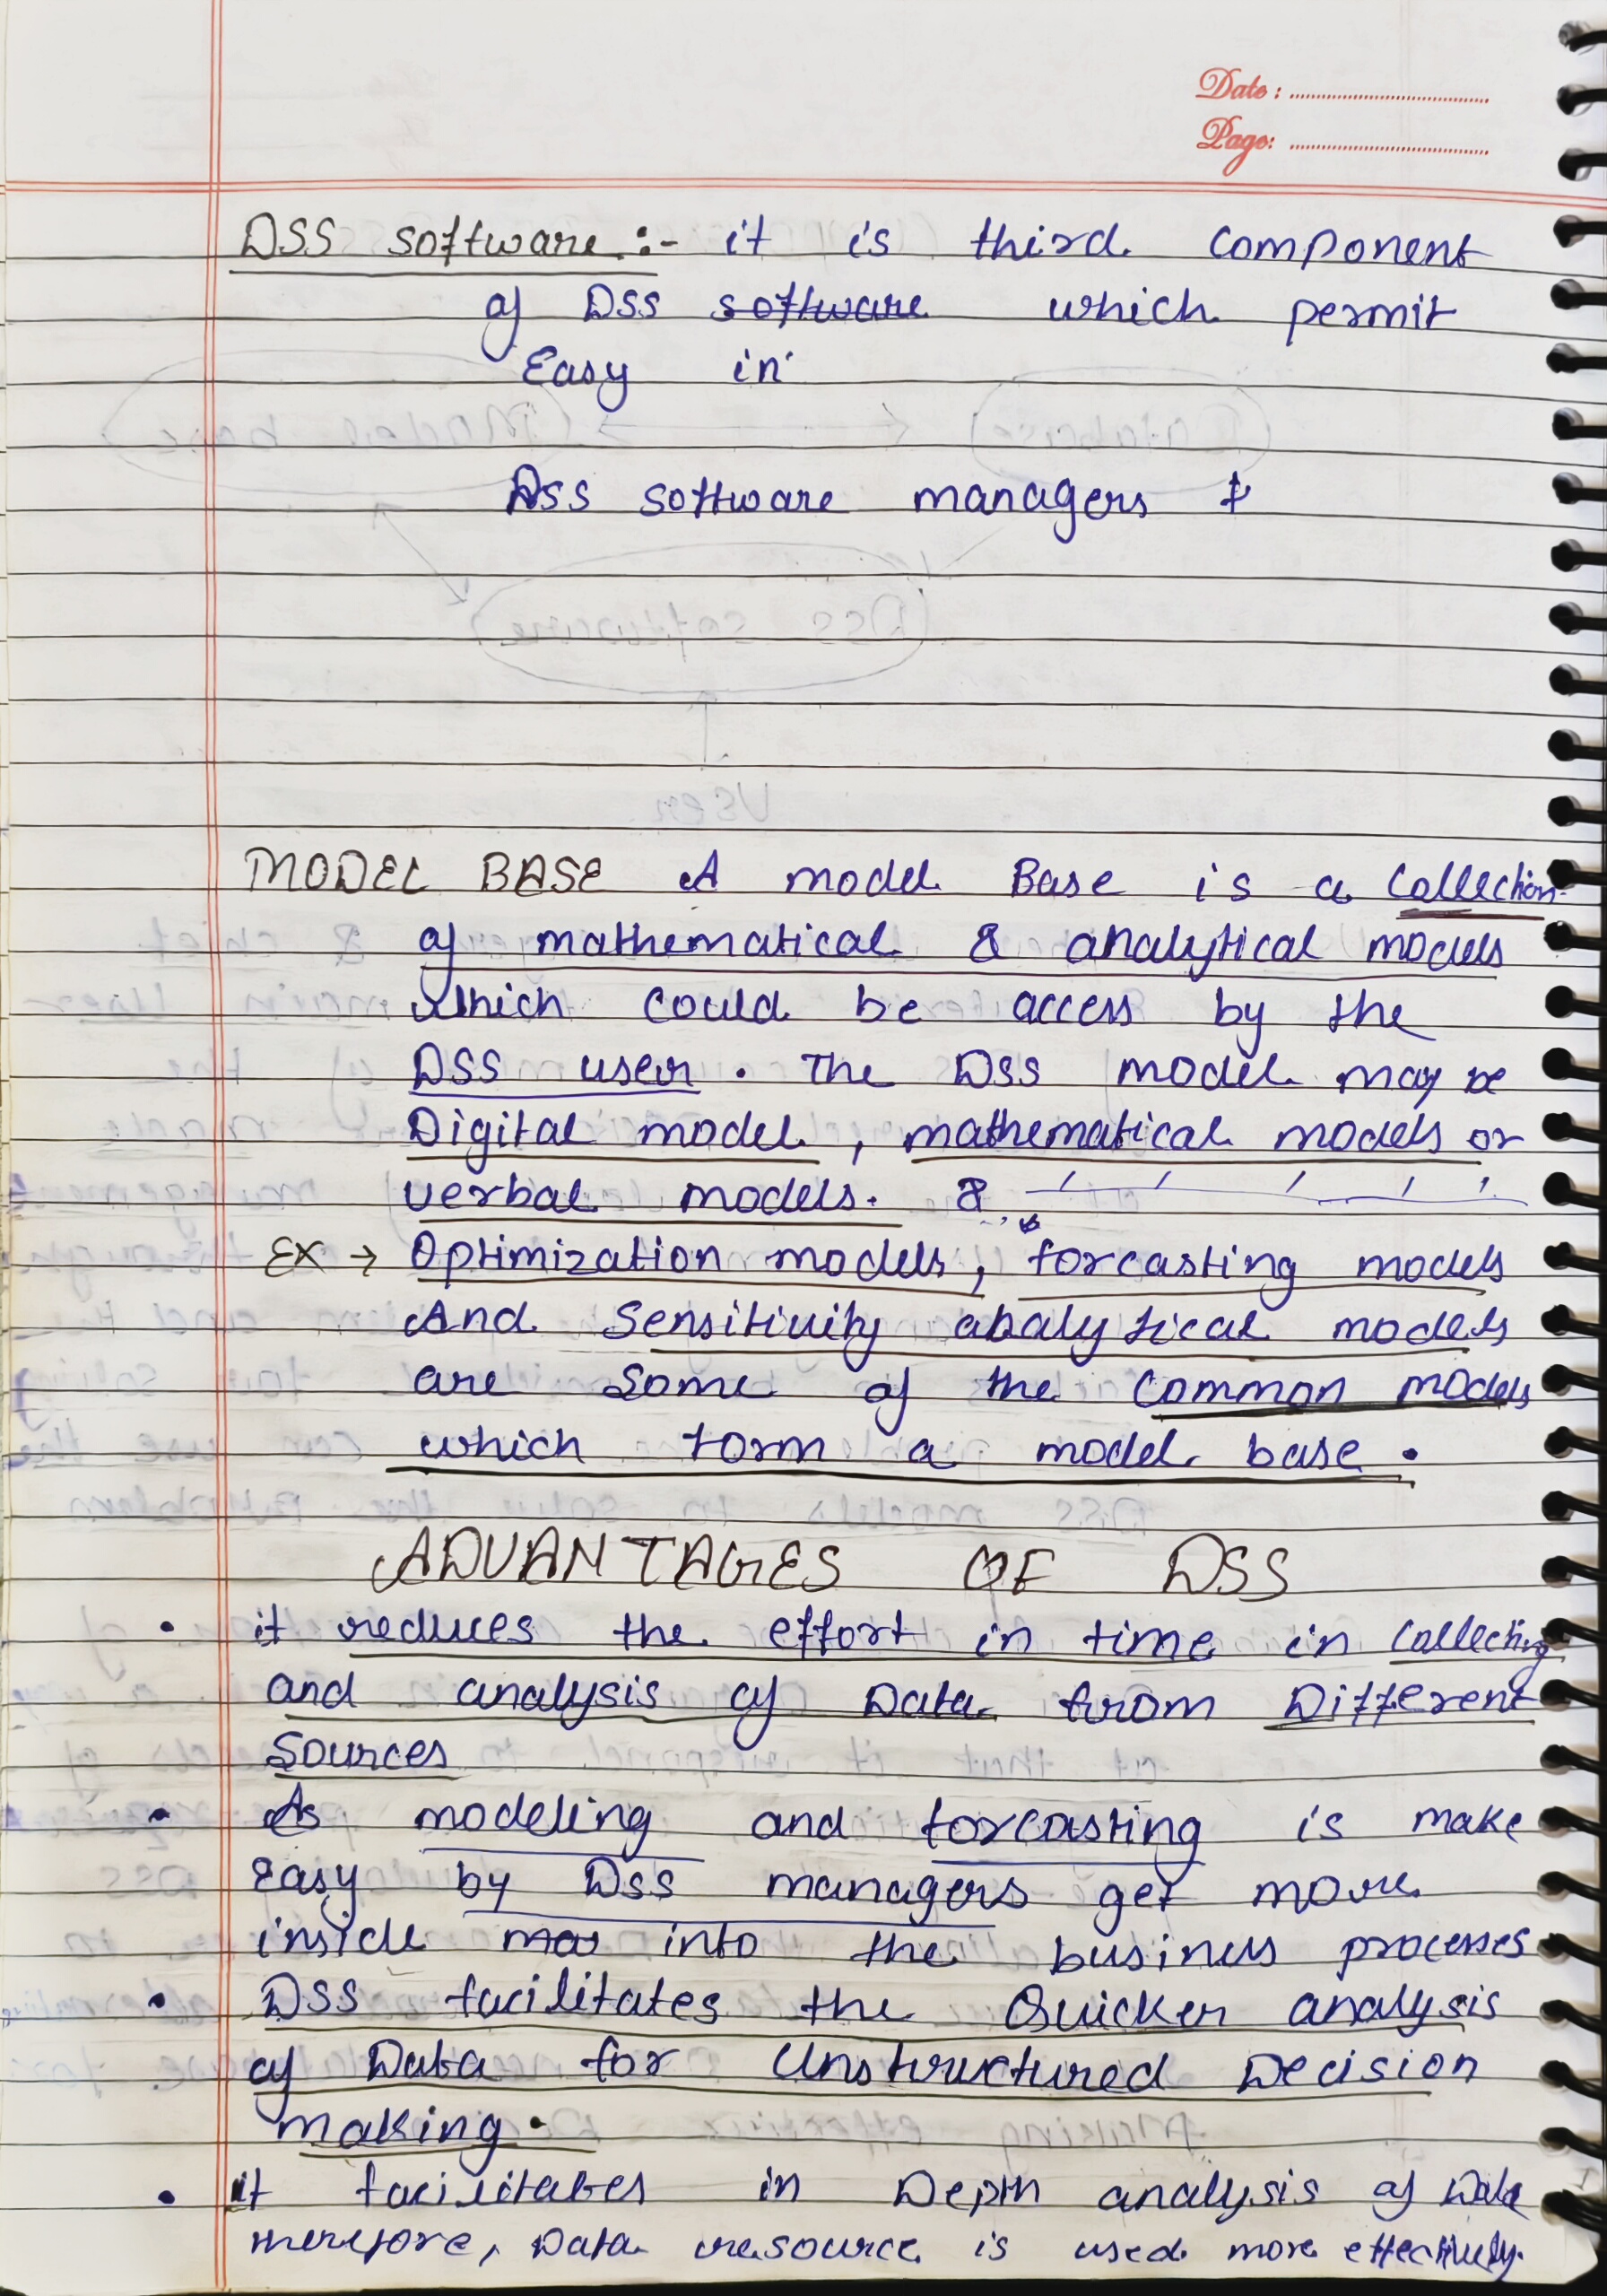 Date :
Page:
DSS software :- it is third component
of DSS software which permit
Easy in
DSS software managers
MODEL BASE A model Base is a Collection
of mathematical & analytical models
which could be access by the
DSS user . The DSS model may be
Digital model , mathematical models or
verbal models. &
EX → Optimization models, forcasting models
And Sensitivity abalytical models
are some of the common models
which form a model base .
ADVANTAGES OF DSS
• it reduces the effort in time in collecting
and analysis of Data from Different
Sources
• As modeling and forcasting is make
Easy by DSS managers get more
inside mor into the business processes
• DSS facilitates the Quicker analysis
of Data for Unstructured Decision
making.
• it facilitates in Depth analysis of Data
therefore, Data resource is used more effectively.